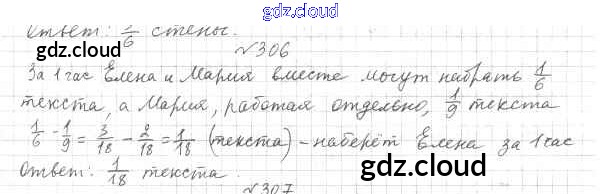 gdz.cloud
Ответ: 1/6 стены.
gdz.cloud
№306
За 1 час Елена и Мария вместе могут набрать 1/6
текста, а Мария, работая отдельно, 1/9 текста
1/6 - 1/9 = 3/18 - 2/18 = 1/18 (текста) - наберёт Елена за 1 час
Ответ: 1/18 текста.
gdz.cloud
gdz.cloud
№307